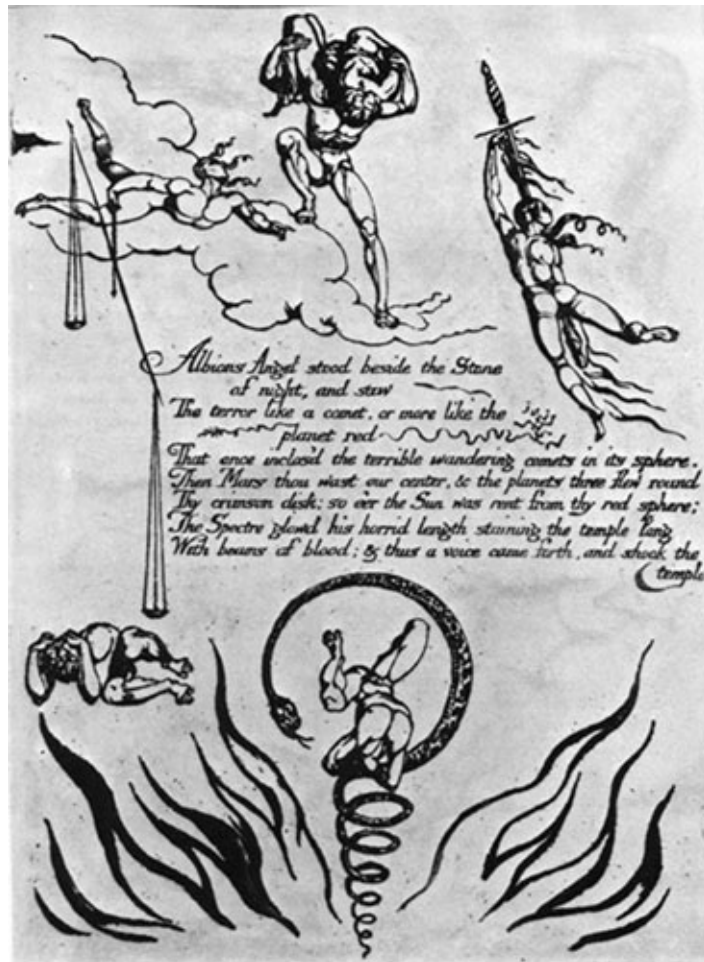 Albions Angel stood beside the Stone
of night, and saw
The terror like a comet, or more like the
planet red
That once inclos'd the terrible wandering comets in its sphere.
Then Mars thou wast our center, & the planets three flew round
Thy crimson disk; so e'er the Sun was rent from thy red sphere;
The Spectre glowd his horrid length staining the temple long
With beams of blood; & thus a voice came forth, and shook the
temple